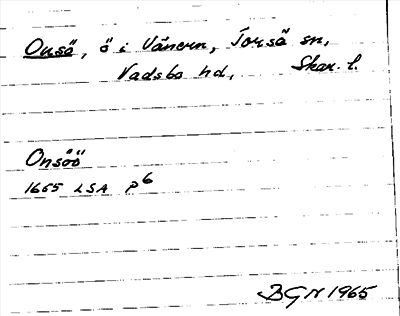 Onsö, ö i Vänern, Torsö sn,
Vadsbo hd, Skar. l.
Onsöö
1665 LSA P6
BGN 1965